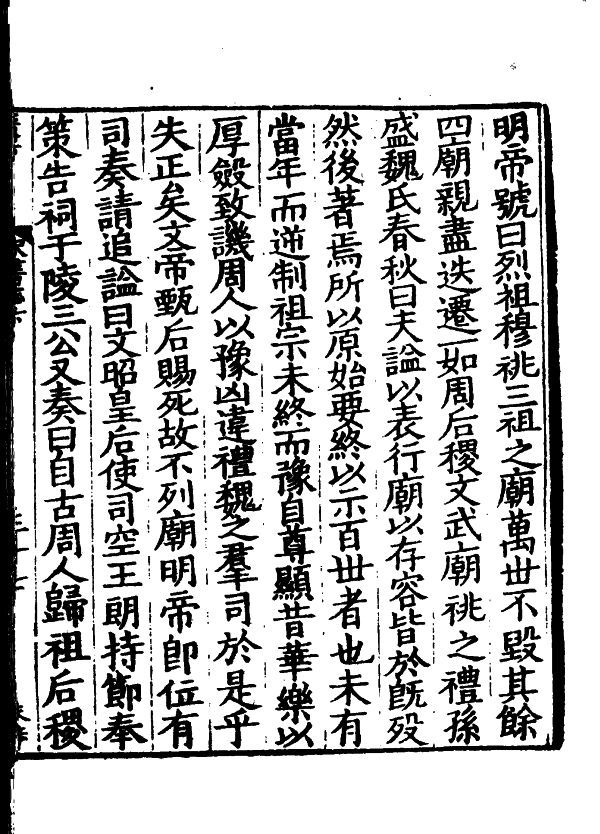 明帝號曰烈祖穆祧三祖之廟萬世不毀其餘
四廟親盡迭遷一如周后稷文武廟祧之禮孫
盛魏氏春秋曰夫諡以表行廟以存容皆於旣歿
然後著焉所以原始要終以示百世者也未有
當年而逆制祖宗未終而豫自尊顯昔華樂以
厚斂致譏周人以豫凶違禮魏之羣司於是乎
失正矣文帝甄后賜死故不列廟明帝卽位有
司奏請追諡曰文昭皇后使司空王朗持節奉
策告祠于陵三公又奏曰自古周人歸祖后稷